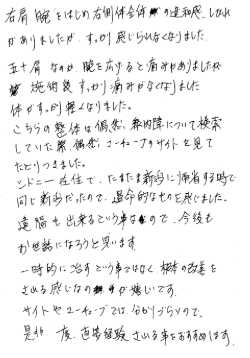 右肩 腕をはじめ右側体全体の違和感、しびれ
がありましたが、すっかり感じられなくなりました
五十肩なのか 腕を広げると痛みがありましたが
施術後すっかり痛みがなくなりました
体がすっかり軽くなりました。
こちらの整体は偶然、緑内障について検索
していた際 偶然ユーチューブのサイトを見て
たどりつきました。
シドニー在住で、たまたま新潟に帰省する時で
同じ新潟だったので、運命的なものを感じました。
遠隔も出来るという事なので、今後も
お世話になろうと思います。
一時的に治すという事ではなく 根本の改善を
される感じなのが嬉しいです。
サイトやユーチューブでは分かりづらいので、
是非一度、直接経験される事をおすすめします。